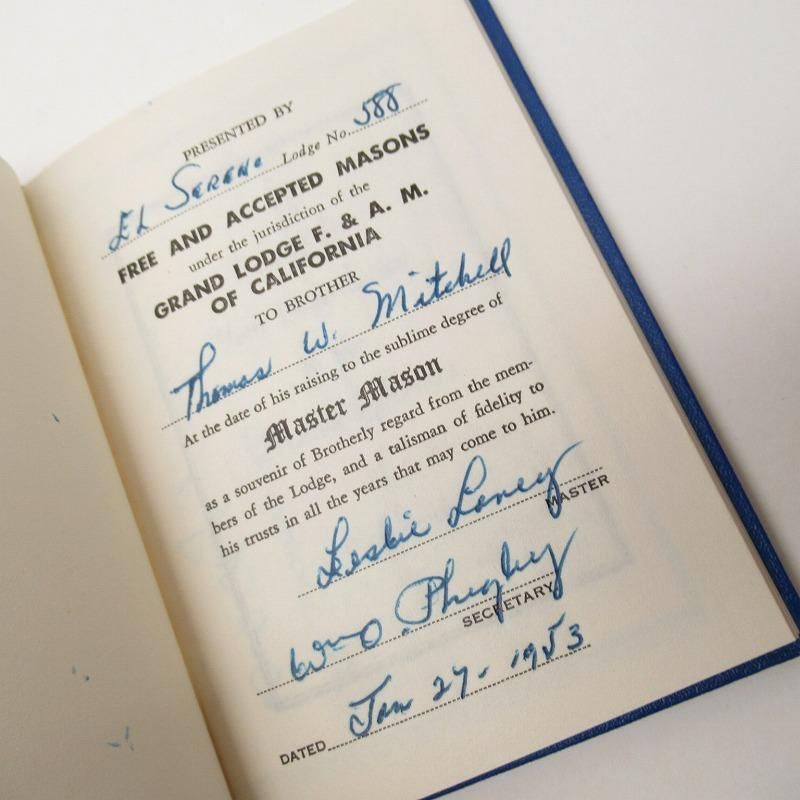 PRESENTED BY
El Sereno Lodge No. 588
FREE AND ACCEPTED MASONS
under the jurisdiction of the
GRAND LODGE F. & A. M.
OF CALIFORNIA
TO BROTHER
Thomas W. Mitchell
At the date of his raising to the sublime degree of
Master Mason
as a souvenir of Brotherly regard from the mem-
bers of the Lodge, and a talisman of fidelity to
his trusts in all the years that may come to him.
Leslie
MASTER
Wm O.
SECRETARY
DATED Jan 27 - 1953